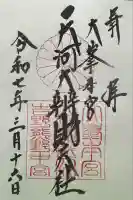 奉拝
大峯本宮
天河大辨財天社
令和七年三月十六日